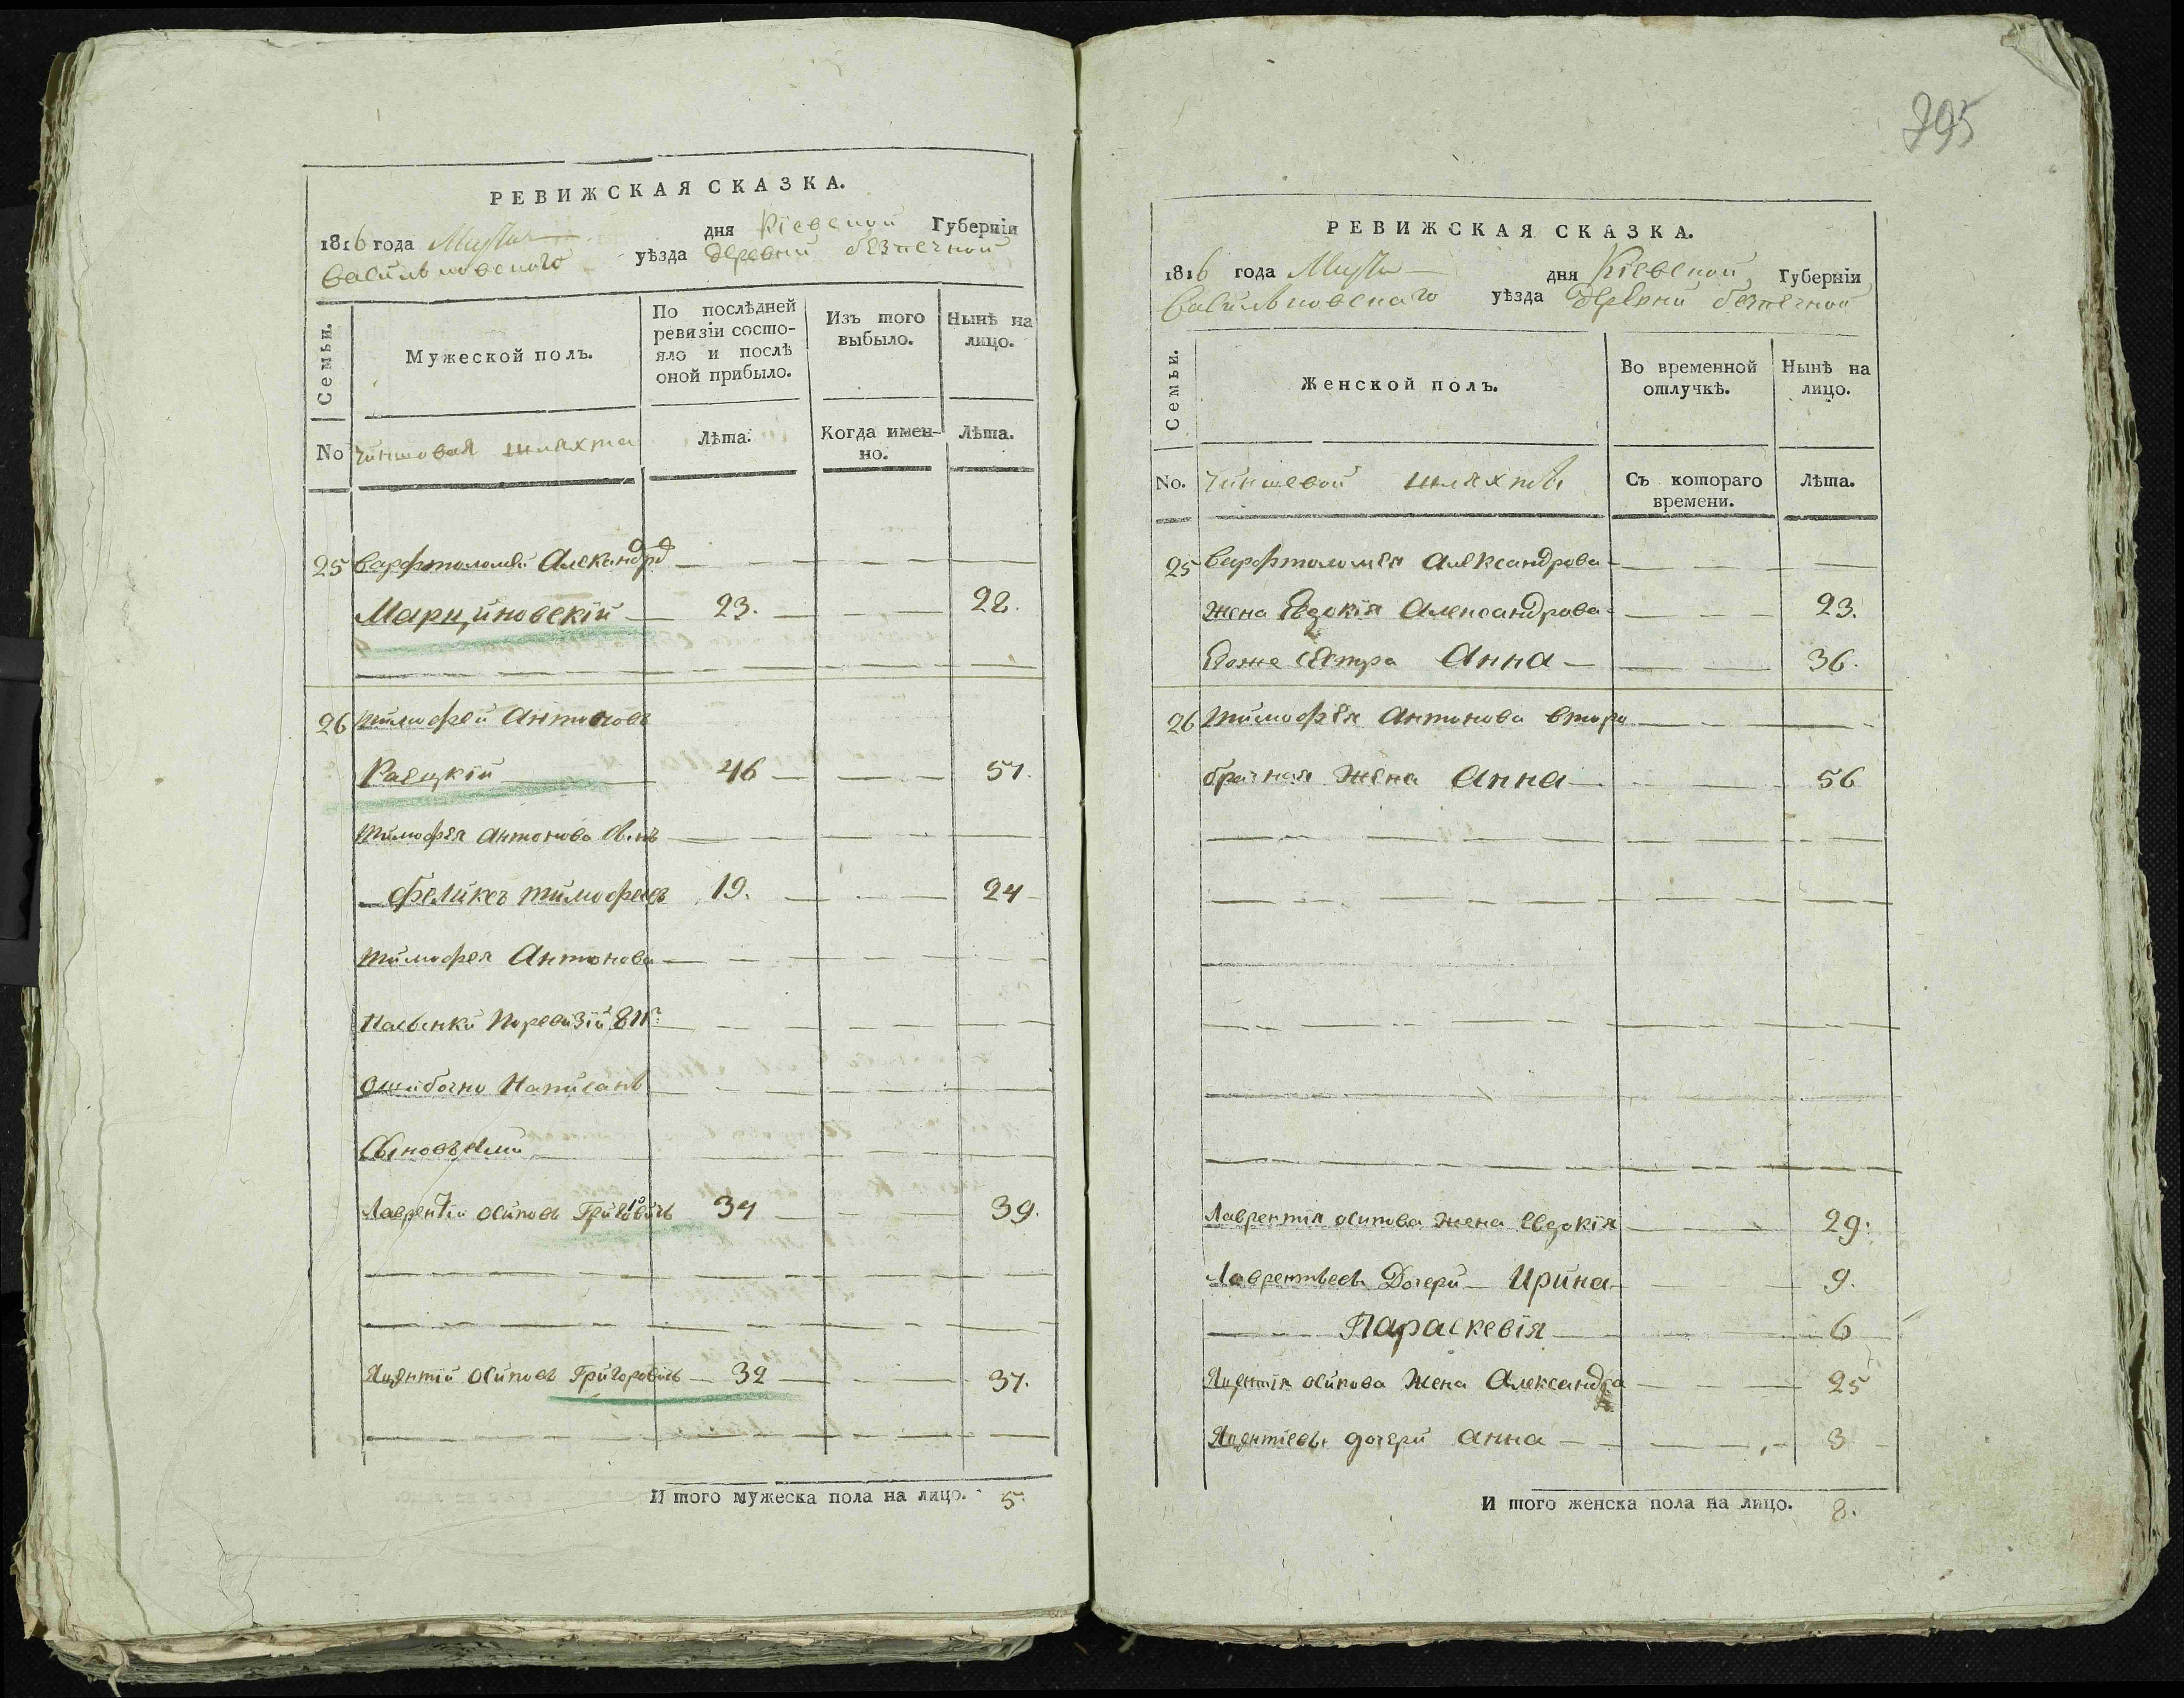 РЕВИЖСКАЯ СКАЗКА.
1816 года Марта дня Кіевской Губерніи
Васильковского уѣзда деревни безпечной
Семьи.
Мужеской полъ.
По послѣдней ревизіи состояло и послѣ оной прибыло.
Изъ того выбыло.
Нынѣ на лицо.
No чиншовая шляхта
Лѣта.
Когда именно.
Лѣта.
25 Варфтоломѣй Александро
Марциновскій 23. 28.
26 тимофей Антоновъ
Раецкій 46 51.
тимофея Антонова сынъ
феликсъ тимофеевъ 19. 24
тимофея Антонова
Пасынки Поревизіи 811г:
ошибочно Написанъ
Сыновьями
Лаврентіи осиповъ Григоровичъ 34 39.
Яцентій осиповъ Григоровичъ 32 37.
И того мужеска пола на лицо. 5.
395
РЕВИЖСКАЯ СКАЗКА.
1816 года Марта дня Кіевской Губерніи
Васильковскаго уѣзда деревни безпечной
Семьи.
Женской полъ.
Во временной отлучкѣ.
Нынѣ на лицо.
No. чиншевой шляхты
Съ котораго времени.
Лѣта.
25 Варфтоломея Александрова
жена Евдокія Александрова 23.
Егоже сестра Анна 36.
26 тимофѣя Антонова втора
брачная жена Анна 56
Лаврентія осипова жена Евдокія 29.
Лаврентьевы Дочери Ирина 9.
Параскевія 6
Яцентія осипова жена Александра 25
Яцентіевы дочери анна 3
И того женска пола на лицо. 8.